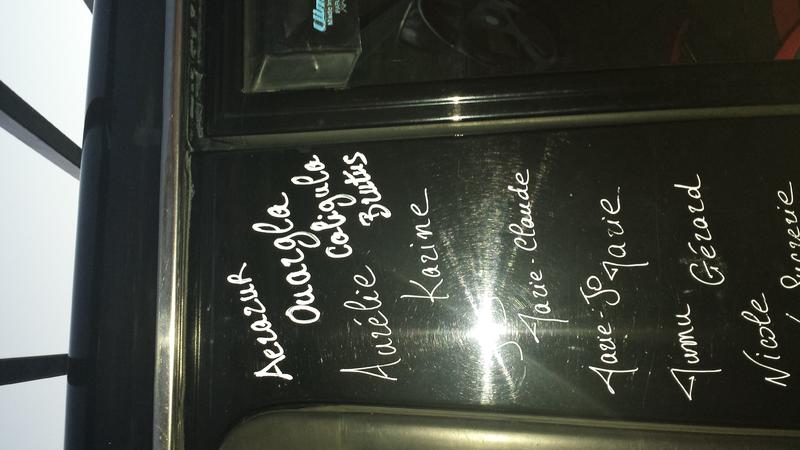 Aerazur
Ouargla
Caligula
Brutus
Aurélie
Karine
Marie-Claude
Marie-Jo
Marie
Mumu
Gérard
Nicole
Lucrecie